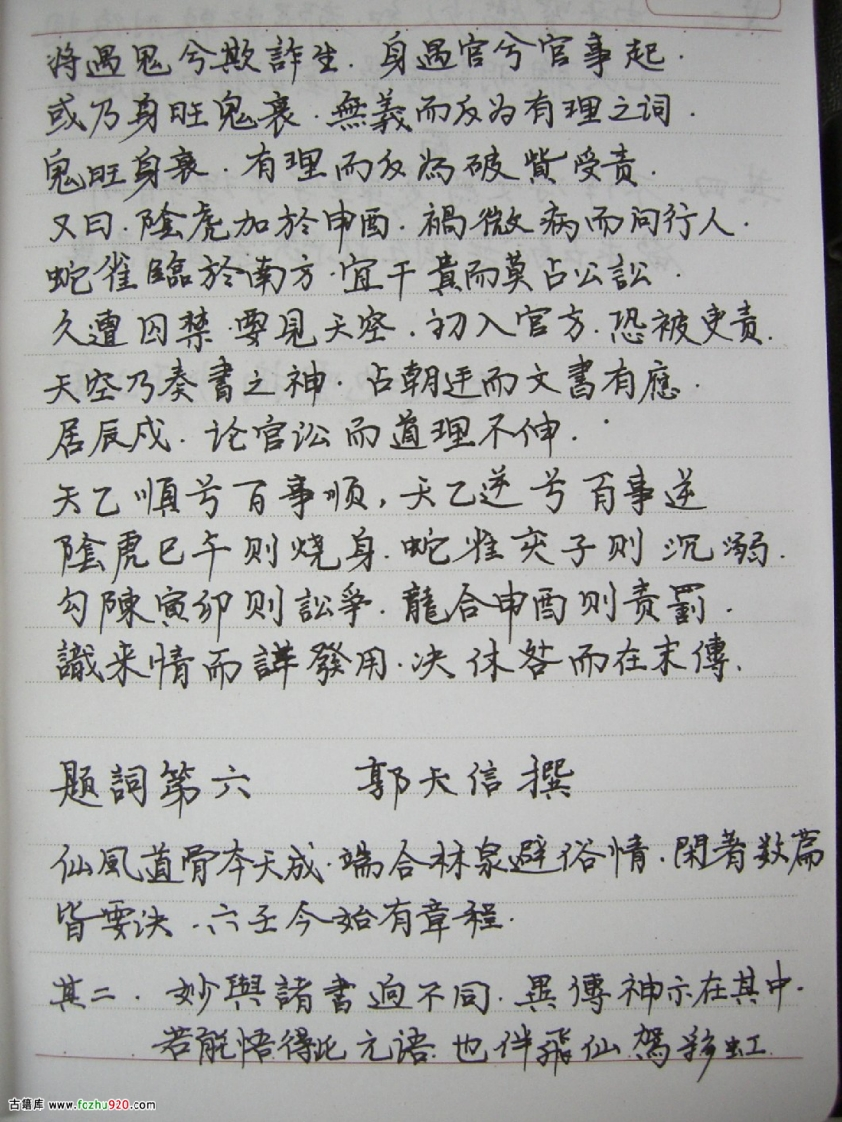 将遇鬼兮欺詐生．身遇官兮官事起．
或乃身旺鬼衰．無義而反为有理之词．
鬼旺身衰．有理而反为破貲受责．
又曰．陰虎加於申酉．禍微病而问行人．
蛇雀臨於南方．宜干貴而莫占公訟．
久遭囚禁．要見天空．初入官方．恐被吏责．
天空乃奏書之神．占朝廷而文書有應．
居辰戌．论官讼而道理不伸．
天乙順兮百事顺，天乙逆兮百事逆
陰虎巳午则烧身．蛇雀亥子则沉溺．
勾陳寅卯则訟爭．龍合申酉则责罰．
識来情而詳發用．决休咎而在末傳．
題詞第六　郭天信撰
仙風道骨本天成．端合林泉避俗情．閑著数篇
皆要决．六壬今始有章程．
其二．妙與諸書迥不同．異傳神示在其中．
若能悟得此元语．也伴飛仙駕彩虹
古籍库 www.fozhu920.com